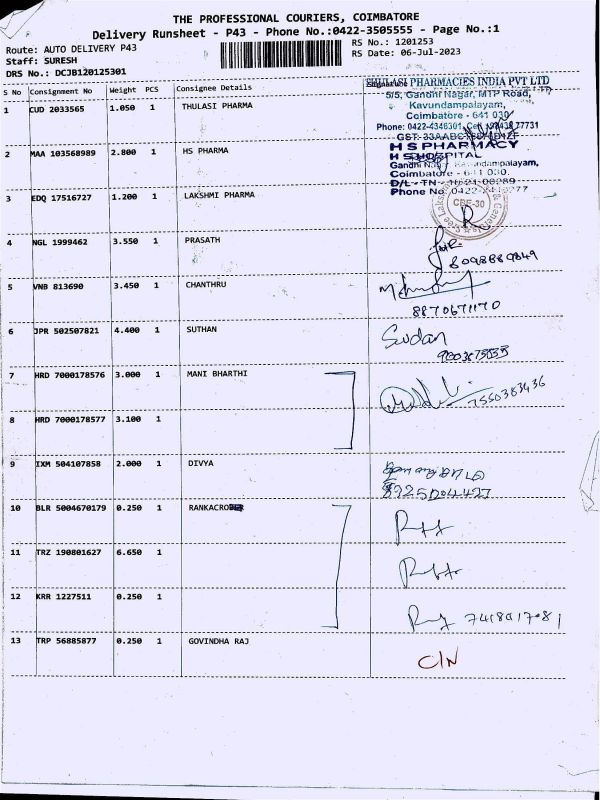 THE PROFESSIONAL COURIERS, COIMBATORE
Delivery Runsheet - P43 - Phone No.:0422-3505555 - Page No.:1
Route: AUTO DELIVERY P43
RS No.: 1201253
Staff: SURESH
RS Date: 06-Jul-2023
DRS No.: DCJB120125301
S No Consignment No Weight PCS Consignee Details
1 CUD 2033565 1.050 1 THULASI PHARMA
THULASI PHARMACIES INDIA PVT LTD
5/5, Gandhi Nagar, MTP Road,
Kavundampalayam,
Coimbatore - 641 030
Phone: 0422-4346301, Cell
2 MAA 103568989 2.800 1 HS PHARMA
H S PHARMACY
H S HOSPITAL
Gandhi Nagar, Kavundampalayam,
Coimbatore - 641 030.
Phone No
3 EDQ 17516727 1.200 1 LAKSHMI PHARMA
CBE-30
4 NGL 1999462 3.550 1 PRASATH
5 VNB 813690 3.450 1 CHANTHRU
8870671170
6 JPR 502507821 4.400 1 SUTHAN
Sudan
7 HRD 7000178576 3.000 1 MANI BHARTHI
7550383436
8 HRD 7000178577 3.100 1
9 IXM 504107858 2.000 1 DIVYA
10 BLR 5004670179 0.250 1
11 TRZ 190801627 6.650 1
12 KRR 1227511 0.250 1
13 TRP 56885877 0.250 1 GOVINDHA RAJ
C/N